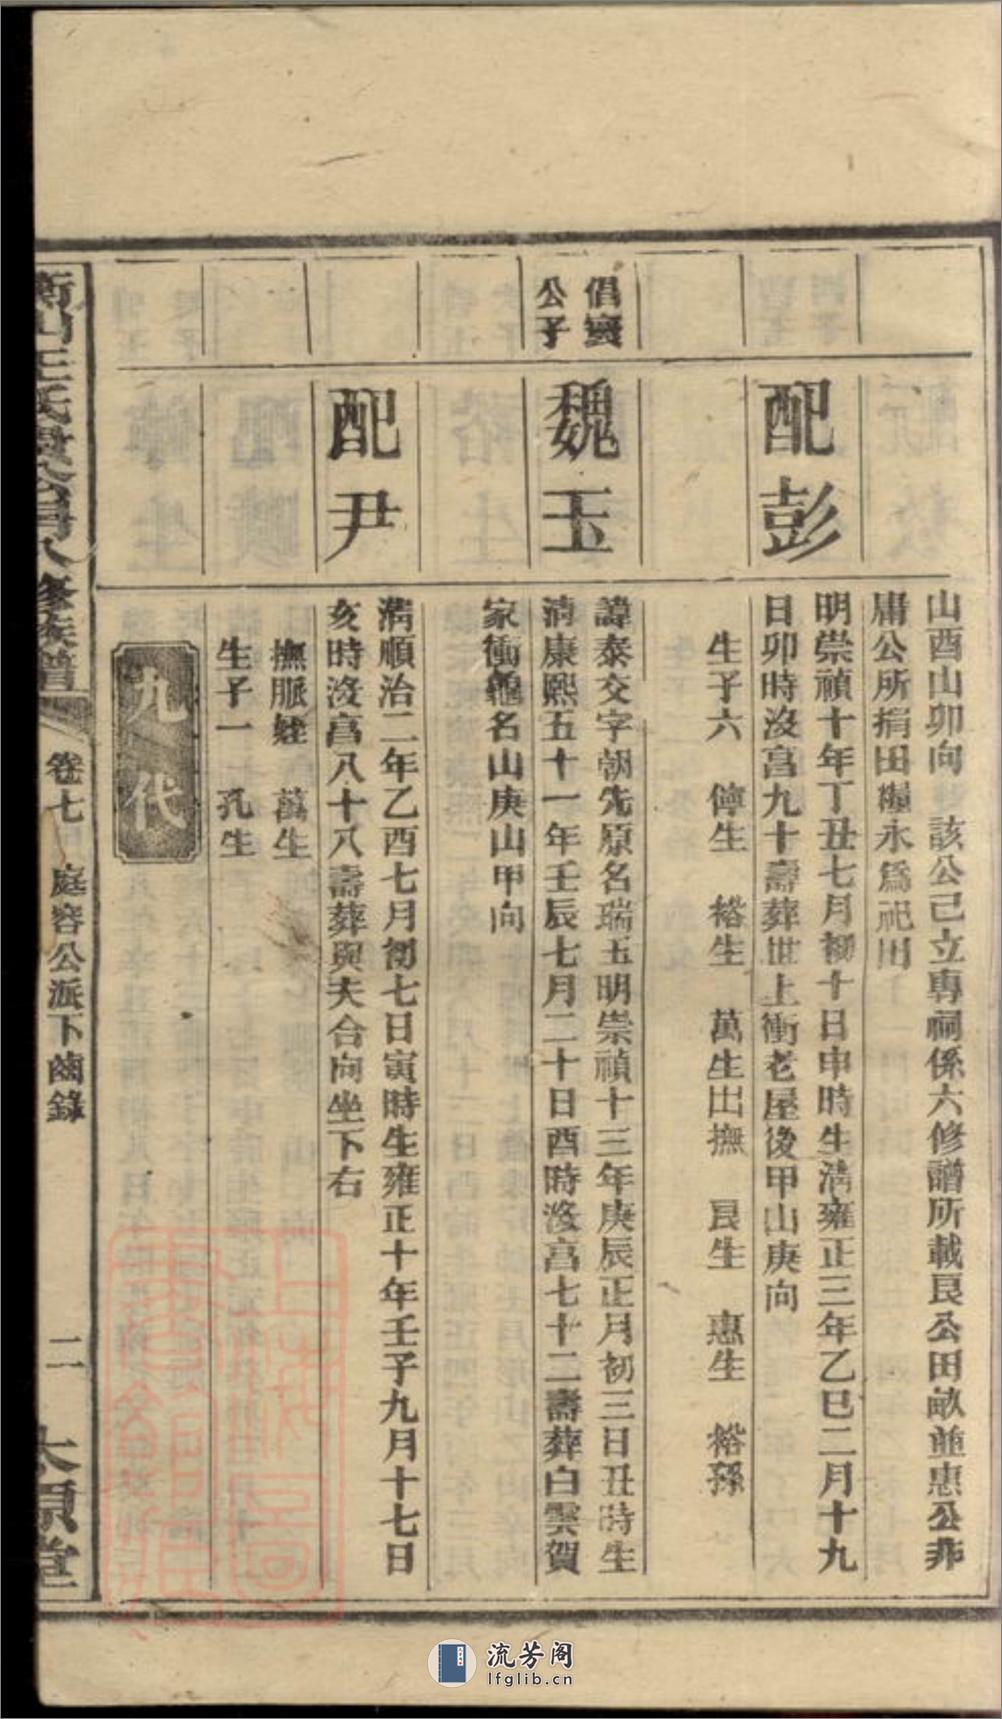 山酉山卯向 該公己立專祠係六修譜所載艮公田畝並惠公非
庸公所捐田糧永爲祀田
配彭
明崇禎十年丁丑七月初十日申時生清雍正三年乙巳二月十九
日卯時沒享九十壽葬世上衝老屋後甲山庚向
生子六 儜生 裕生 萬生出撫 艮生 惠生 裕孫
倡寰
公子
魏玉
諱泰交字朝先原名瑞玉明崇禎十三年庚辰正月初三日丑時生
清康熙五十一年壬辰七月二十日酉時沒享七十二壽葬白雲賀
家衝龜名山庚山甲向
配尹
清順治二年乙酉七月初七日寅時生雍正十年壬子九月十七日
亥時沒享八十八壽葬與夫合向坐下右
撫脈姪 萬生
生子一 孔生
九代
衡山王氏 八修族譜
卷七 庭容公派下齒錄
二
太原堂
流芳阁
lfglib.cn